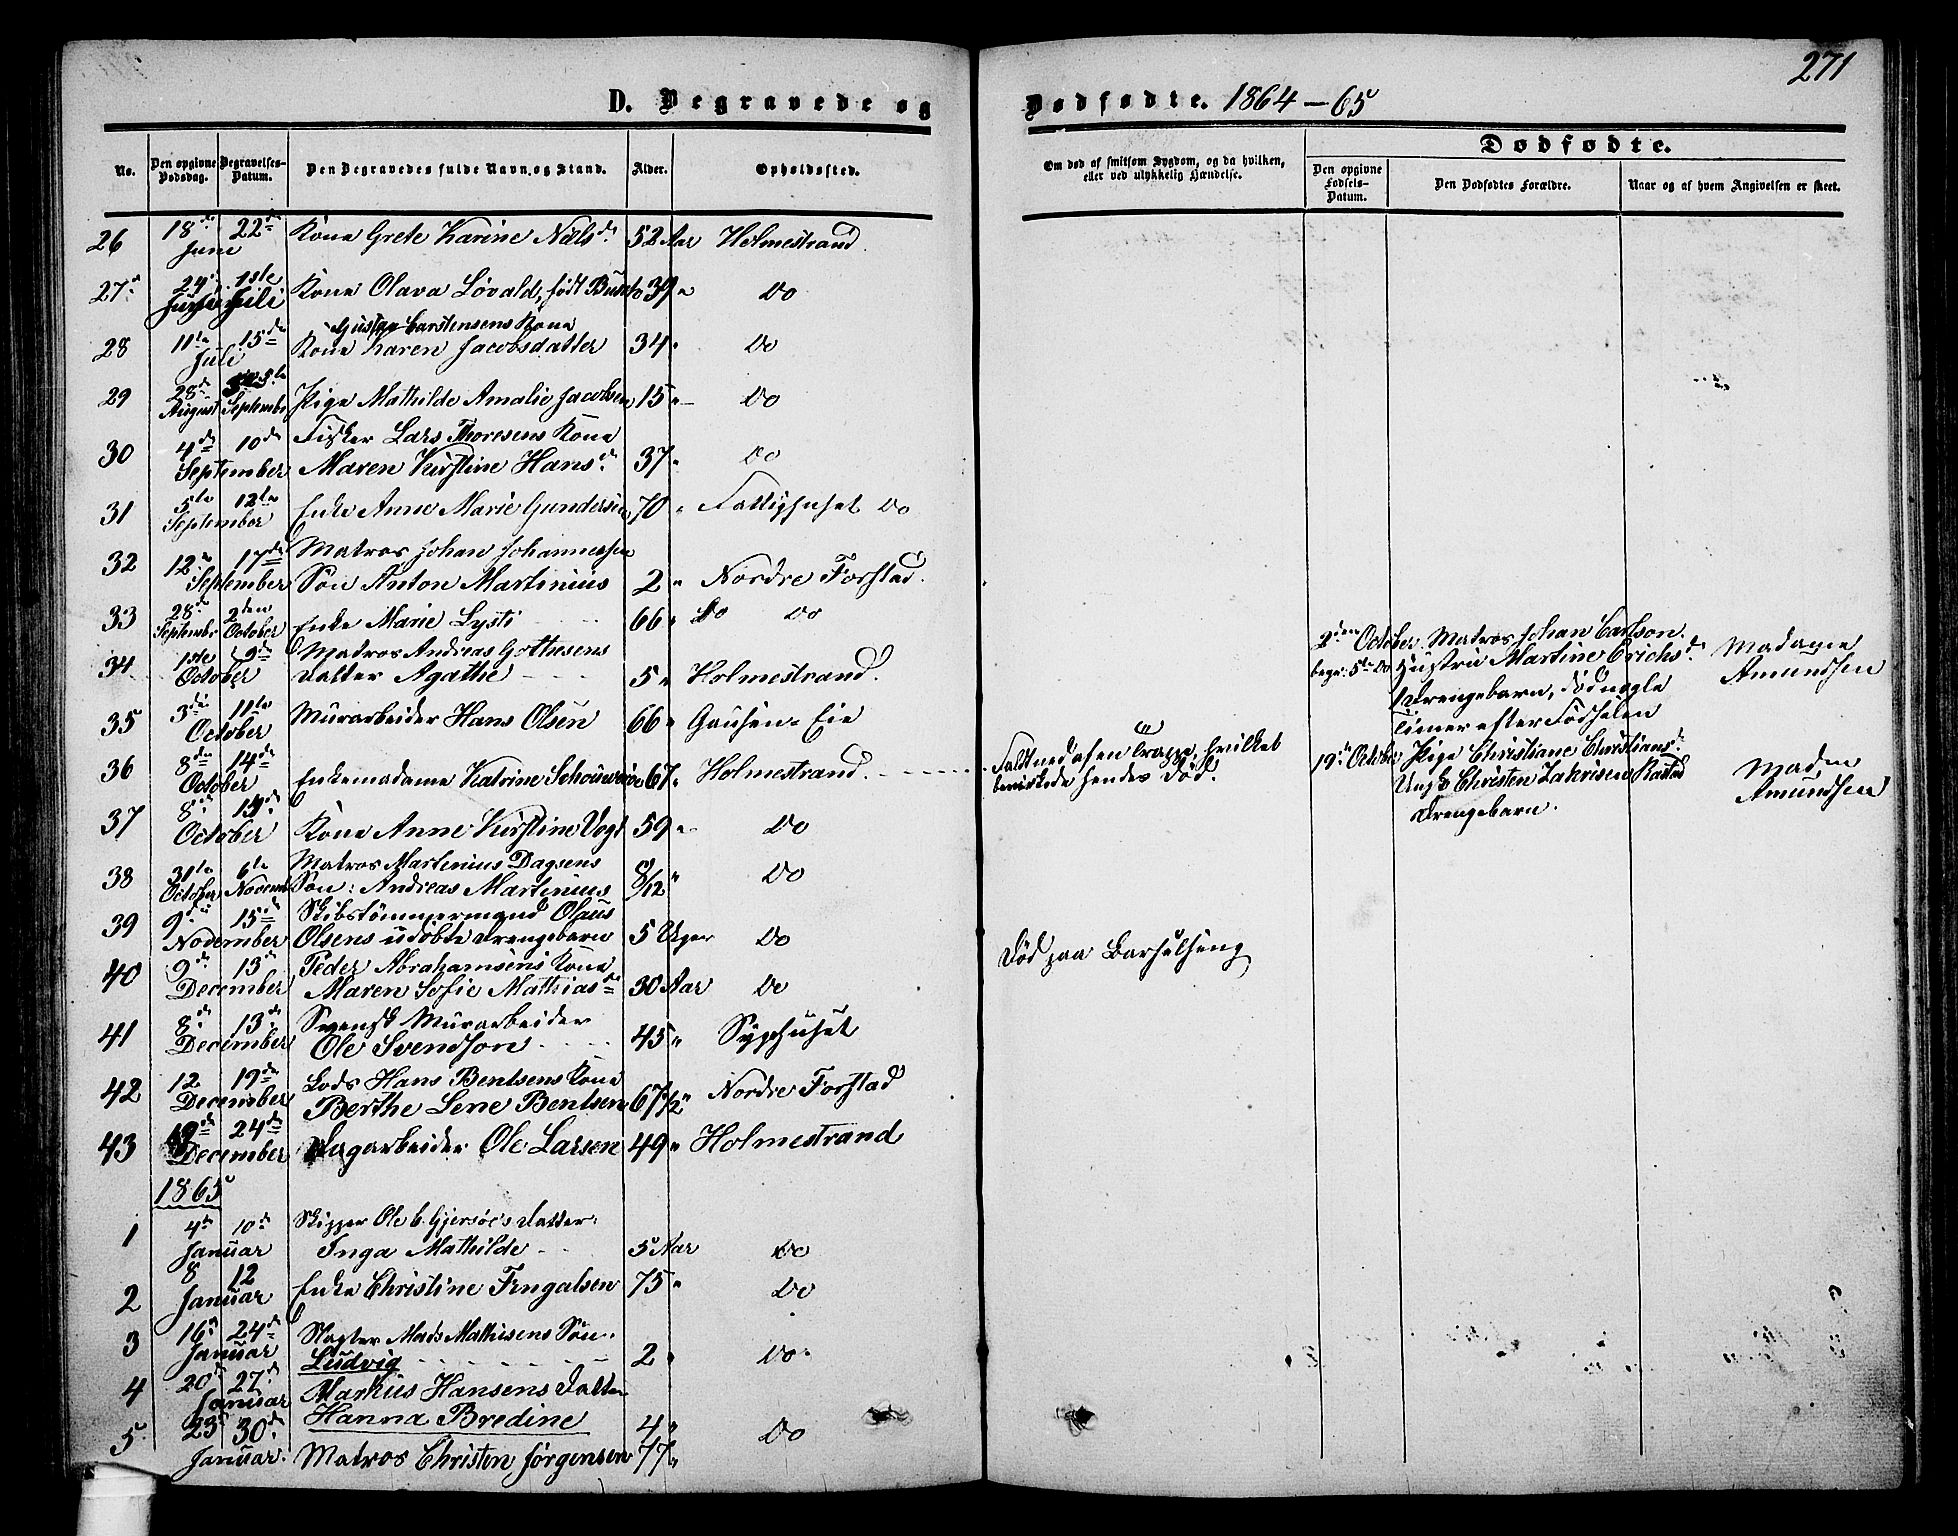 271
D. Begravede og Dødfødte. 1864-65
No.
Den opgivne Dødsdag.
Begravelses-Datum.
Den Begravedes fulde Navn og Stand.
Alder.
Opholdssted.
Om død af smitsom Sygdom, og da hvilken, eller ved ulykkelig Hændelse.
Dødfødte.
Den opgivne Fødsels-Datum.
Den Dødfødtes Forældre.
Naar og af hvem Angivelsen er skeet.
26 18de Juni 22de Kone Grete Karine Nilsd. 52 Aar Holmestrand.
27 24 Juni 1ste Juli Kone Olava Løvald, født Busch 39 " Do
Gustav Carstensens Kone
28 11te Juli 15de Kone Karen Jacobsdatter 34 " Do
29 28de August September Pige Mathilde Amalie Jacobsen 15 " Do
30 4de September 10de Fisker Lars Thoresens Kone
Maren Kirstine Hansd. 37 " Do
31 5te September 12te Enke Anne Marie Gundersen 70 " Fattighuset Do
32 12te September 17de Matros Johan Johannessen
Søn Anton Martinius 2 " Nordre Forstad.
33 28de September 2den October Enke Marie Lysti 66 " Do Do
34 1ste October 9de Matros Andreas Gothesens
Datter Agathe 5 " Holmestrand.
35 3die October 11te Murarbeider Hans Olsen 66 " Gausen-Eie
36 8de October 14de Enkemadame Katrine 67 " Holmestrand.
Faldt ned af en Trappe, hvilket
bevirkede hendes Død.
37 8de October 14de Kone Anne Kirstine Vogt 59 " Do
38 31te October 6te Novemb Matros Martenius Dagsens
Søn: Andreas Martinius 8/12 " Do
39 9de November 15de Skibstømmermand Olaus
Olsens udøbte Drengebarn 5 Uger Do
40 9de December 13de Peder Abrahamsens Kone
Maren Sofie Mathiasd. 30 Aar Do
Død paa Barselseng
41 8de December 13de Svensk Murarbeider
Ole Svendson 45 " Sygehuset
42 12 December 19de Lods Hans Bentsens Kone
Berthe Lene Bentsen 67 1/2 " Nordre Forstad
43 19de December 24de Dagarbeider Ole Larsen 49 " Holmestrand
1865
1 4de Januar 10de Skipper Ole C. Gjersøe's Datter
Inga Mathilde 5 Aar Do
2 8 Januar 12 Enke Christine Fengalsen 75 " Do
3 16de Januar 24de Slagter Mads Mathisens Søn.
Ludvig 2 " Do.
4 20de Januar 27de Markus Hansens Datter
Hanna Bredine 4 " Do
5. 23de Januar. 30de Matros Christen Jørgensen 77 "
2den October Matros Johan Carlson
begr: 5te Do Hustru Martine Erichsd.
1 Drengebarn, død nogle
Timer efter Fødselen
Madame
Amundsen
19de October Pige Christiane Christiansd.
Ungk Christen Zakrisen Rastad
Drengebarn.
Madm
Amundsen